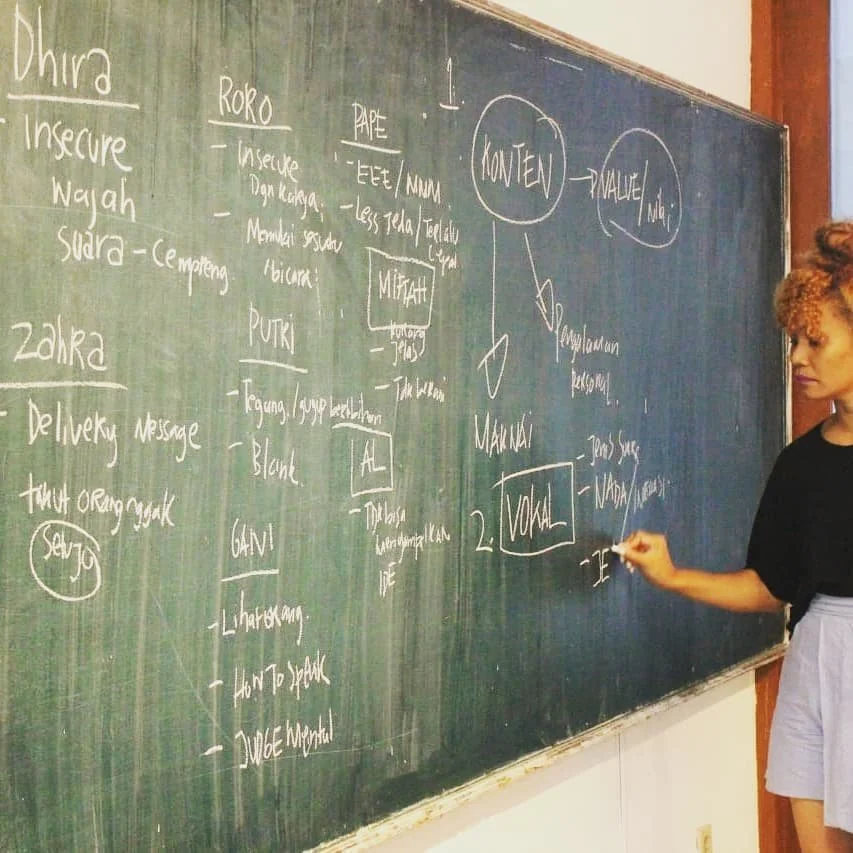 Dhira
- Insecure
Wajah
Suara - Cempreng
Zahra
- Delivery Message
takut orang nggak
Setuju
RORO
- Insecure
Dgn Karya
- Memulai sesuatu
/bicara
PUTRI
- Tegang/gugup berlebihan
- Blank
GANI
- Lihat orang
- How To Speak
- JUDGE Mental
PAPE
- EEE/MMM
- Less Jeda/Terlalu
Cepat
MIFTAH
- kurang
Jelas
- Tdk berani
AL
- Tdk bisa
menyampaikan
IDE
1.
KONTEN
VALUE/nilai
Pengalaman
personal
MAKNAI
2. VOKAL
- Jenis
- NADA/
- JE